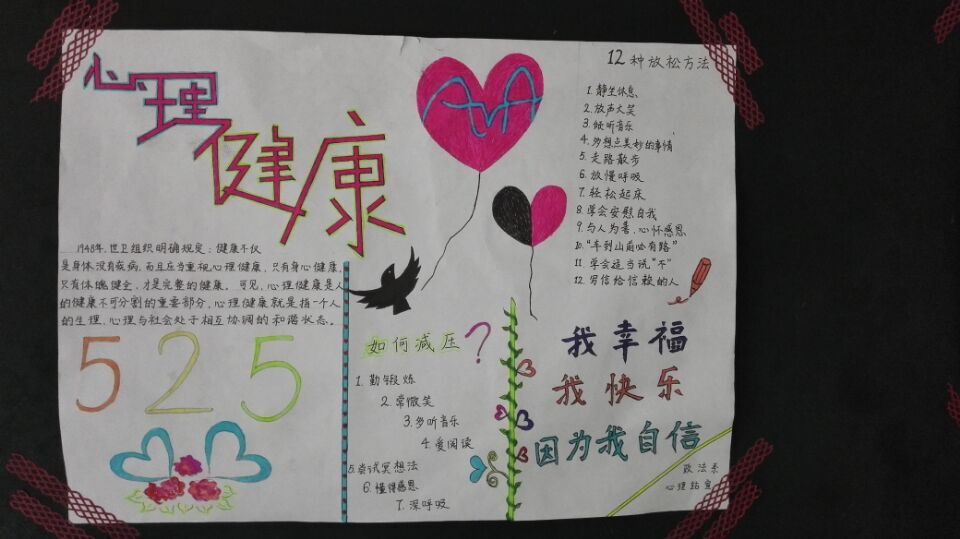 心理健康
1948年,世卫组织明确规定:健康不仅
是身体没有疾病,而且应当重视心理健康,只有身心健康,
只有体魄健全,才是完整的健康。可见,心理健康是人
的健康不可分割的重要部分,心理健康就是指一个人
的生理、心理与社会处于相互协调的和谐状态。
525
如何减压?
1.勤锻炼
2.常微笑
3.多听音乐
4.爱阅读
5.尝试冥想法
6.懂得感恩
7.深呼吸
12种放松方法
1.静坐休息
2.放声大笑
3.倾听音乐
4.多想点美妙的事情
5.走路散步
6.放慢呼吸
7.轻松起床
8.学会安慰自我
9.与人为善,心怀感恩
10."车到山前必有路"
11.学会适当说"不"
12.写信给信赖的人
我幸福
我快乐
因为我自信
政法系
心理站宣